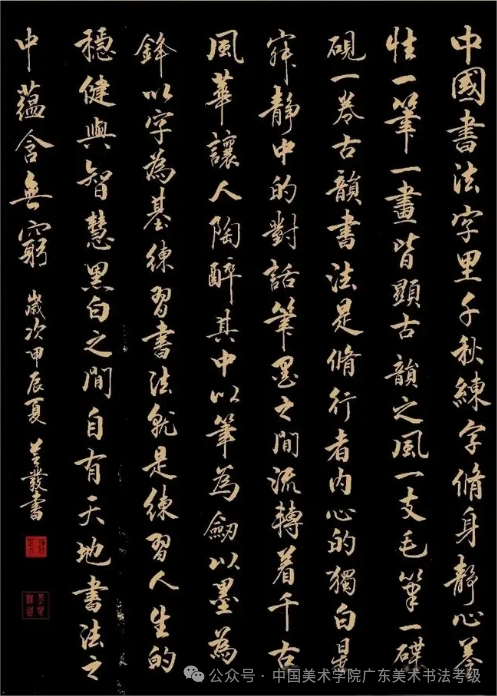 中國書法字里千秋練字脩身靜心養
性一筆一畫皆顯古韻之風一支毛筆一碟
硯一卷古韻書法是脩行者內心的獨白是
寂靜中的對話筆墨之間流轉着千古
風華讓人陶醉其中以筆為劍以墨為
鋒以字為基練習書法就是練習人生的
穩健與智慧黑白之間自有天地書法之
中蘊含無窮
歲次甲辰夏
書
公众号·中国美术学院广东美术书法考级